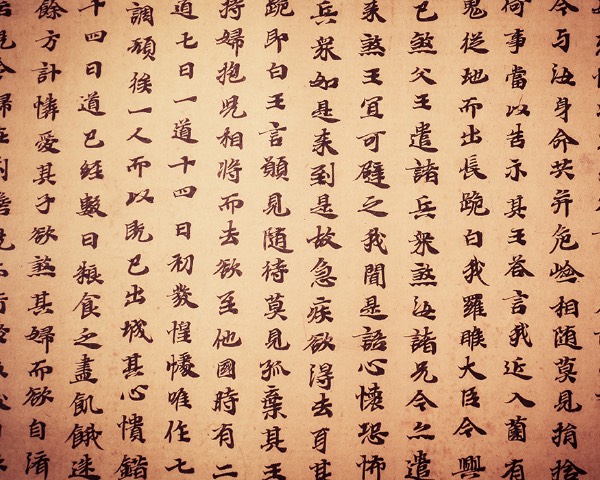 今与汝身命共并危嶮相随莫見捐捨
何事當以告示其王荅言我近入薗有
鬼從地而出長跪白我羅睺大臣今興
已煞父王遣諸兵衆煞汝諸兄今亦遣
来煞王冝可避之我聞是語心懐恐怖
兵衆如是来到是故急疾欲得去耳其
跪即白王言願見随待莫見孤棄其王
持婦抱兒相将而去欲至他國時有二
道七日一道十四日初發惶懅唯作七
調頋俟一人而以既已出城其心憒錯
十四日道已經數日粮食乏盡飢餓迷
餘方計憐愛其子欲煞其婦而欲自濟